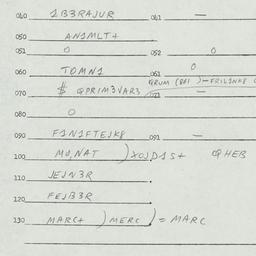 040 1B3RAJUR 041 —
050 AN1MLT+
051 0 052 0
060 TOMN1 061 0
070 $ QPRIM3VAR3 QRUM (BEI )-FRIL1NKS 071 —
080 0
090 F1N1FTEJK8 091 —
100 MU,NAT ) XOJD1S+ QHEB
110 JEJN3R
120 FEJB3R
130 MARC+ ) MERC ) = MARC